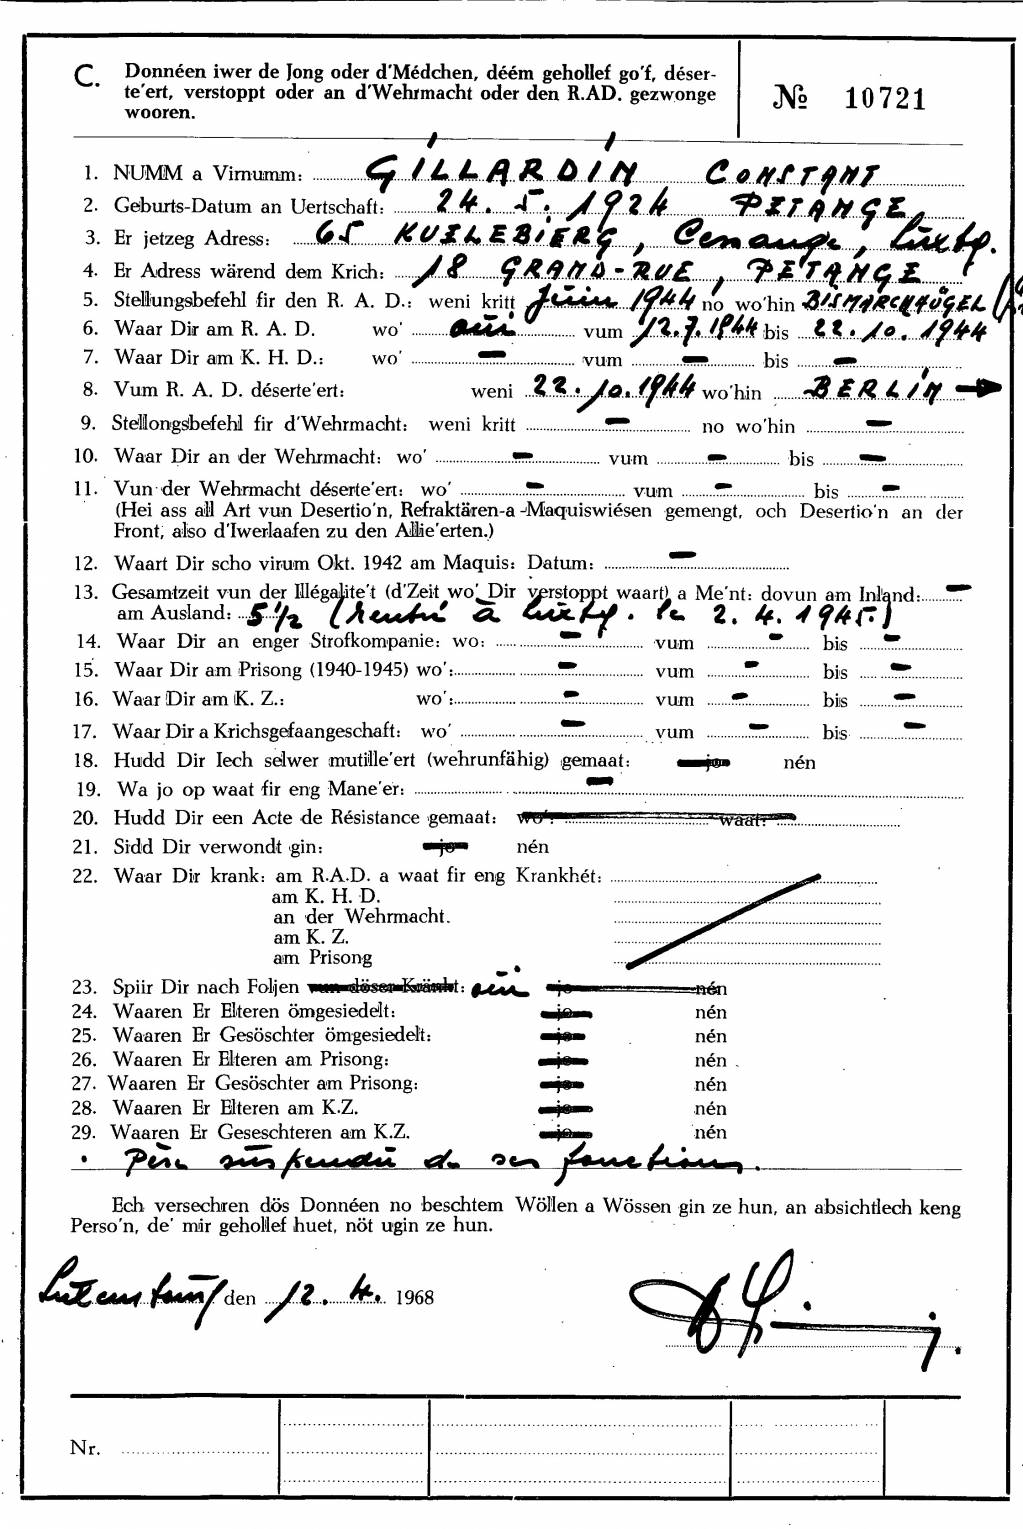 C. Donnéen iwer de Jong oder d'Médchen, déém gehollef go'f, déser-
te'ert, verstoppt oder an d'Wehrmacht oder den R.AD. gezwonge
wooren.
№ 10721
1. NUMM a Virnumm: GILLARDIN CONSTANT
2. Geburts-Datum an Uertschaft: 24. 5. 1924 PETANGE
3. Er jetzeg Adress: 65 KUELEBIERG, Luxbg.
4. Er Adress wärend dem Krich: 18 GRAND-RUE, PETANGE
5. Stellungsbefehl fir den R. A. D.: weni kritt Juin 1944 no wo'hin
6. Waar Dir am R. A. D. wo' oui vum 12.7.1944 bis 22.10.1944
7. Waar Dir am K. H. D.: wo' — vum — bis —
8. Vum R. A. D. déserte'ert: weni 22.10.1944 wo'hin BERLIN →
9. Stellongsbefehl fir d'Wehrmacht: weni kritt — no wo'hin —
10. Waar Dir an der Wehrmacht: wo' — vum — bis —
11. Vun der Wehrmacht déserte'ert: wo' — vum — bis —
(Hei ass all Art vun Desertio'n, Refraktären-a -Maquiswiésen gemengt, och Desertio'n an der
Front, also d'Iwerlaafen zu den Allie'erten.)
12. Waart Dir scho virum Okt. 1942 am Maquis: Datum: —
13. Gesamtzeit vun der Illégalite't (d'Zeit wo' Dir verstoppt waart) a Me'nt: dovun am Inland: —
am Ausland: 5 1/2 (rentré à Luxbg. le 2. 4. 1945.)
14. Waar Dir an enger Strofkompanie: wo: — vum — bis —
15. Waar Dir am Prisong (1940-1945) wo': — vum — bis —
16. Waar Dir am K. Z.: wo': — vum — bis —
17. Waar Dir a Krichsgefaangeschaft: wo' — vum — bis —
18. Hudd Dir Iech selwer mutille'ert (wehrunfähig) gemaat: jo nén
19. Wa jo op waat fir eng Mane'er: —
20. Hudd Dir een Acte de Résistance gemaat: wo': waat:
21. Sidd Dir verwondt gin: jo nén
22. Waar Dir krank: am R.A.D. a waat fir eng Krankhét:
am K. H. D.
an der Wehrmacht.
am K. Z.
am Prisong
23. Spiir Dir nach Foljen vun döser Kränkt: oui jo nén
24. Waaren Er Elteren ömgesiedelt: jo nén
25. Waaren Er Gesöschter ömgesiedelt: jo nén
26. Waaren Er Elteren am Prisong: jo nén
27. Waaren Er Gesöschter am Prisong: jo nén
28. Waaren Er Elteren am K.Z. jo nén
29. Waaren Er Geseschteren am K.Z. jo nén
. Père suspendu de ses fonctions.
Ech versechren dös Donnéen no beschtem Wöllen a Wössen gin ze hun, an absichtlech keng
Perso'n, de' mir gehollef huet, nöt ugin ze hun.
den 12. 4. 1968
Nr.